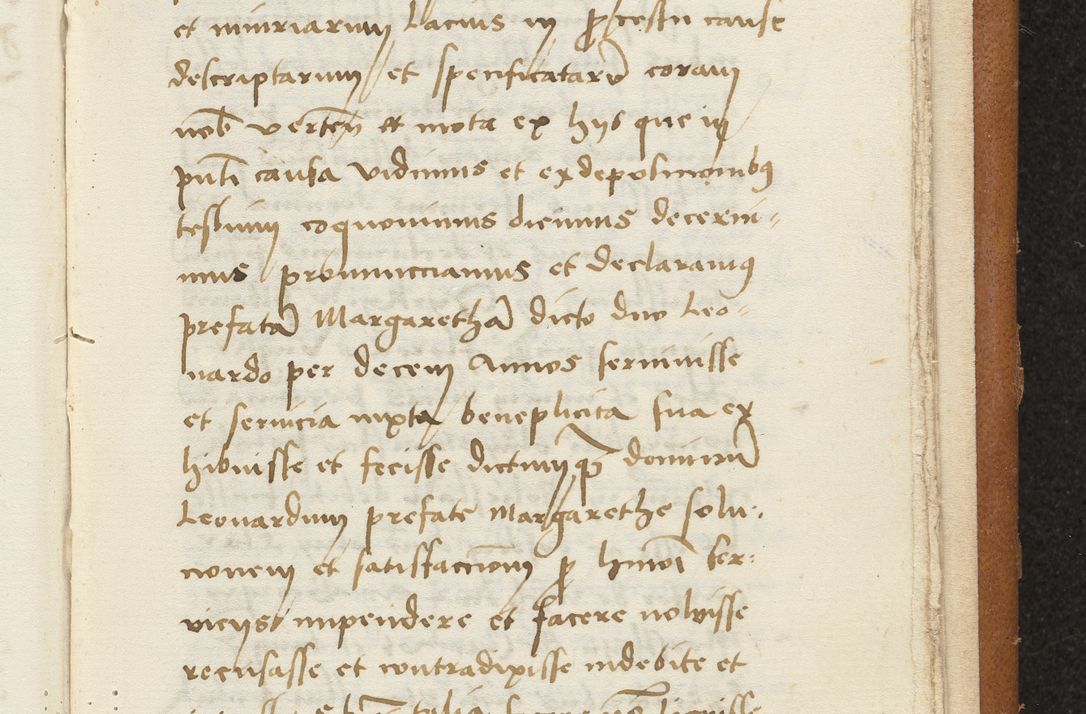 et iniuriarum lacius in processu cause
descriptarum et specificataru coram
nob verten et mota ex hys que in
pnti causa vidimus et ex deposicionibus
testium cognouimus dicimus decerni-
mus pronuncciamus et declaramus
prefata Margaretha dicto dno Leo-
nardo per decem Annos seruiuisse
et seruicia iuxta beneplicita sua ex
hibuisse et fecisse dictumque dominum
Leonardum prefate Margarethe solu-
cionem et satisfaccionem pro hmoi ser-
uicys impendere et facere noluisse
recusasse et contradixisse indebite et